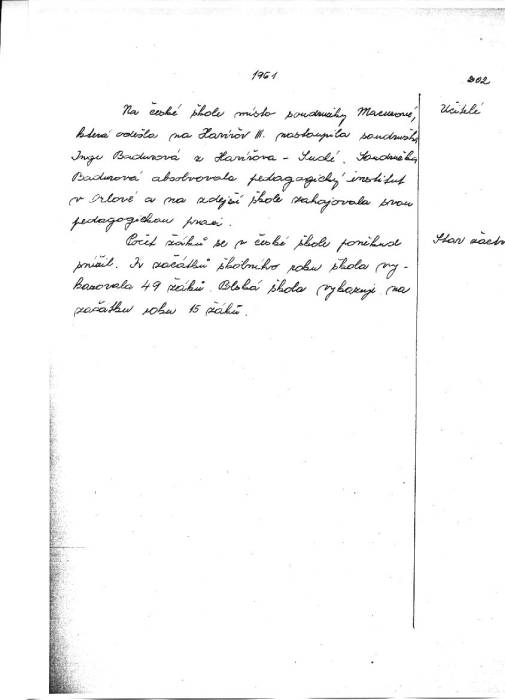 1961
202
Na české škole místo soudružky Macurové, Učitelé
která odešla na Havířov III. nastoupila soudružka
Inge Badurová z Havířova - Suché. Soudružka
Badurová absolvovala pedagogický institut
v Orlové a na zdejší škole zahajovala svou
pedagogickou praxi.
Počet žáků se v české škole poněkud Stav žactv
snížil. K začátku školního roku škola vy-
kazovala 49 žáků. Polská škola vykazuje na
začátku roku 15 žáků.